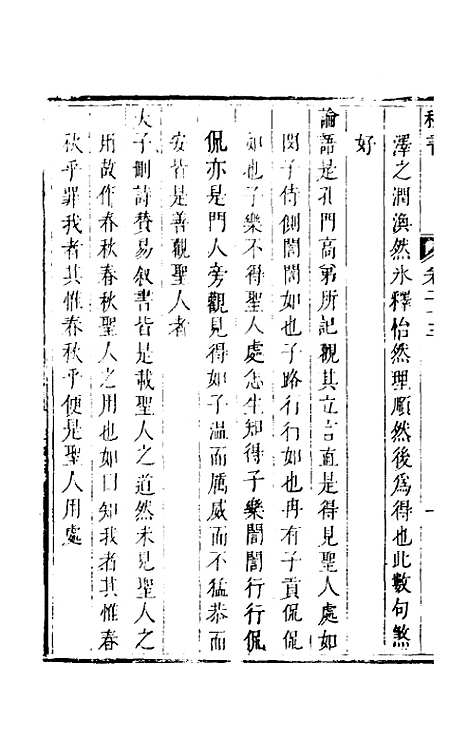 卷二十三
澤之潤渙然氷釋怡然理順然後為得也此數句煞
好
論語是孔門高第所記觀其立言直是得見聖人處如
閔子侍側誾誾如也子路行行如也冉有子貢侃侃
如也子樂不得聖人處怎生知得子樂誾誾行行侃
侃亦是門人旁觀見得如子溫而厲威而不猛恭而
安皆是善觀聖人者
夫子刪詩贊易叙書皆是載聖人之道然未見聖人之
用故作春秋春秋聖人之用也如曰知我者其惟春
秋乎罪我者其惟春秋乎便是聖人用處